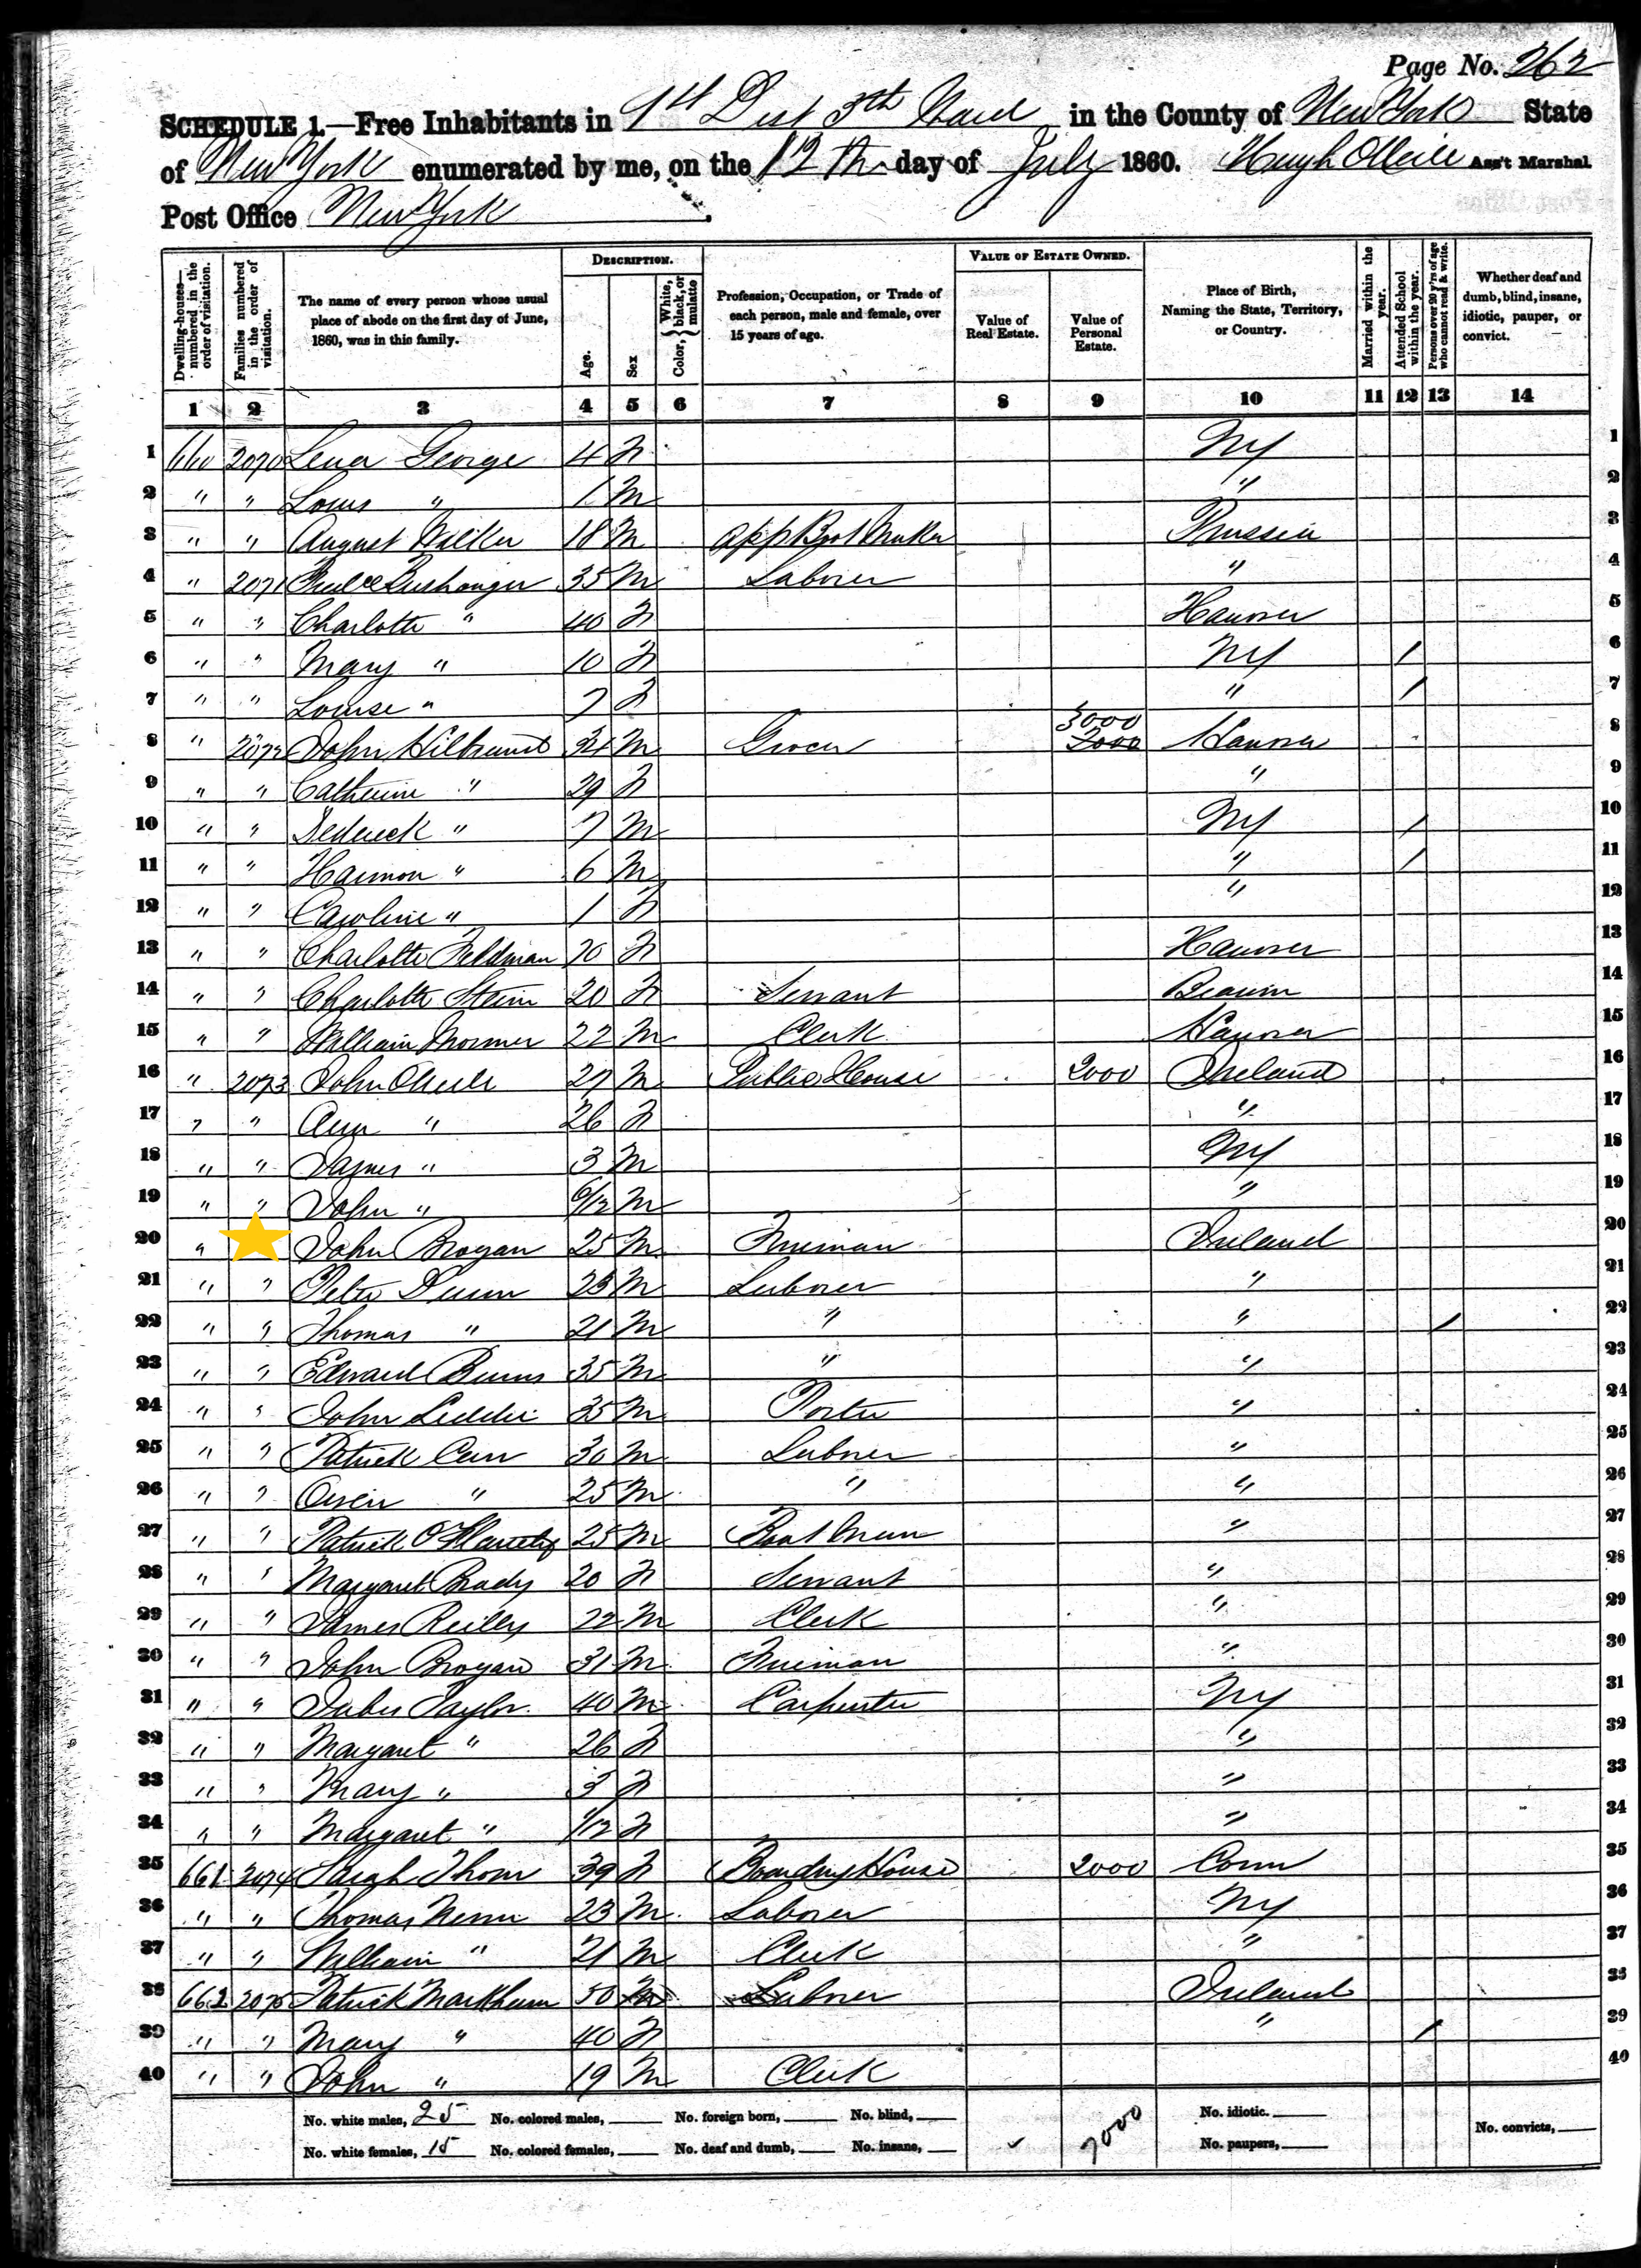 Page No. 262
SCHEDULE 1.—Free Inhabitants in 1st Dist 3th Ward in the County of New York State
of New York enumerated by me, on the 12th day of July 1860. Hugh O'Neill Ass't Marshal
Post Office New York
DESCRIPTION. VALUE OF ESTATE OWNED.
Dwelling-houses—numbered in the order of visitation. Families numbered in the order of visitation. The name of every person whose usual place of abode on the first day of June, 1860, was in this family. Age. Sex Color, { White, black, or mulatto Profession, Occupation, or Trade of each person, male and female, over 15 years of age. Value of Real Estate. Value of Personal Estate. Place of Birth, Naming the State, Territory, or Country. Married within the year. Attended School within the year. Persons over 20 y'rs of age who cannot read & write. Whether deaf and dumb, blind, insane, idiotic, pauper, or convict.
1 2 3 4 5 6 7 8 9 10 11 12 13 14
1 660 2070 Lena George 4 F NY 1
2 " " Louis " 1 M " 2
3 " " August 18 M app Boot Maker Prussia 3
4 " 2071 35 M Laborer " 4
5 " " Charlotte " 40 F Hanover 5
6 " " Mary " 10 F NY / 6
7 " " Louise " 7 F " / 7
8 " 2072 John Hilbrandt 34 M Grocer 3000 2000 Hanover 8
9 " " Catherine " 29 F " 9
10 " " Dederick " 7 M NY / 10
11 " " Harmon " 6 M " / 11
12 " " Caroline " 1 F " 12
13 " " Charlotte Feldman 20 F Hanover 13
14 " " Charlotte Stein 20 F Servant 14
15 " " William 22 M Clerk Hanover 15
16 " 2073 John O'Neile 27 M Public House 2000 Ireland 16
17 " " Ann " 26 F " 17
18 " " James " 3 M NY 18
19 " " John " 6/12 M " 19
20 " John Brogan 25 M Fireman Ireland 20
21 " " Peter Dunn 23 M Laborer " 21
22 " " Thomas " 21 M " " / 22
23 " " Edward Burns 35 M " " 23
24 " " John Leddie 35 M Porter " 24
25 " " Patrick Carr 30 M Laborer " 25
26 " " Owen " 25 M " " 26
27 " " Patrick O'Flaherty 25 M Boat Man " 27
28 " " Margaret Brady 20 F Servant " 28
29 " " James Reilly 22 M Clerk " 29
30 " " John Brogan 31 M Fireman " 30
31 " " Taylor 40 M Carpenter NY 31
32 " " Margaret " 26 F " 32
33 " " Mary " 3 F " 33
34 " " Margaret " 1/12 F " 34
35 661 2074 Sarah Thorn 39 F Boarding House 2000 Conn 35
36 " " Thomas 23 M Laborer NY 36
37 " " William " 21 M Clerk " 37
38 662 2075 Patrick Markham 50 M Laborer Ireland 38
39 " " Mary " 40 F " / 39
40 " " John " 19 M Clerk 40
No. white males, 25 No. colored males, No. foreign born, No. blind, No. idiotic.
No. white females, 15 No. colored females, No. deaf and dumb, No. insane, 7000 No. paupers, No. convicts,